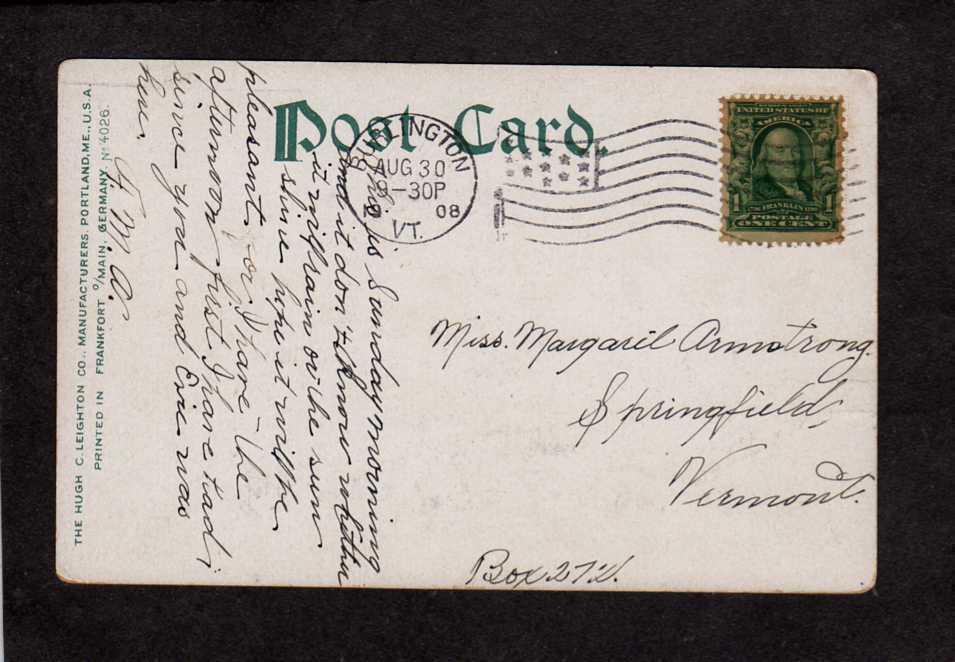 Post Card.
BURLINGTON
AUG 30
9-30P
08
VT.
UNITED STATES OF
AMERICA
1 FRANKLIN 1
POSTAGE
ONE CENT
This is Sunday morning
and it don't know whether
it will rain or the sun
shine hope it will be
pleasant for I have the
afternoon first I have had
since you and Evie was
here.
Miss. Margaret Armstrong.
Springfield,
Vermont.
Box 272.
THE HUGH C. LEIGHTON CO., MANUFACTURERS, PORTLAND, ME., U.S.A.
PRINTED IN FRANKFORT O/MAIN, GERMANY. No 4026.